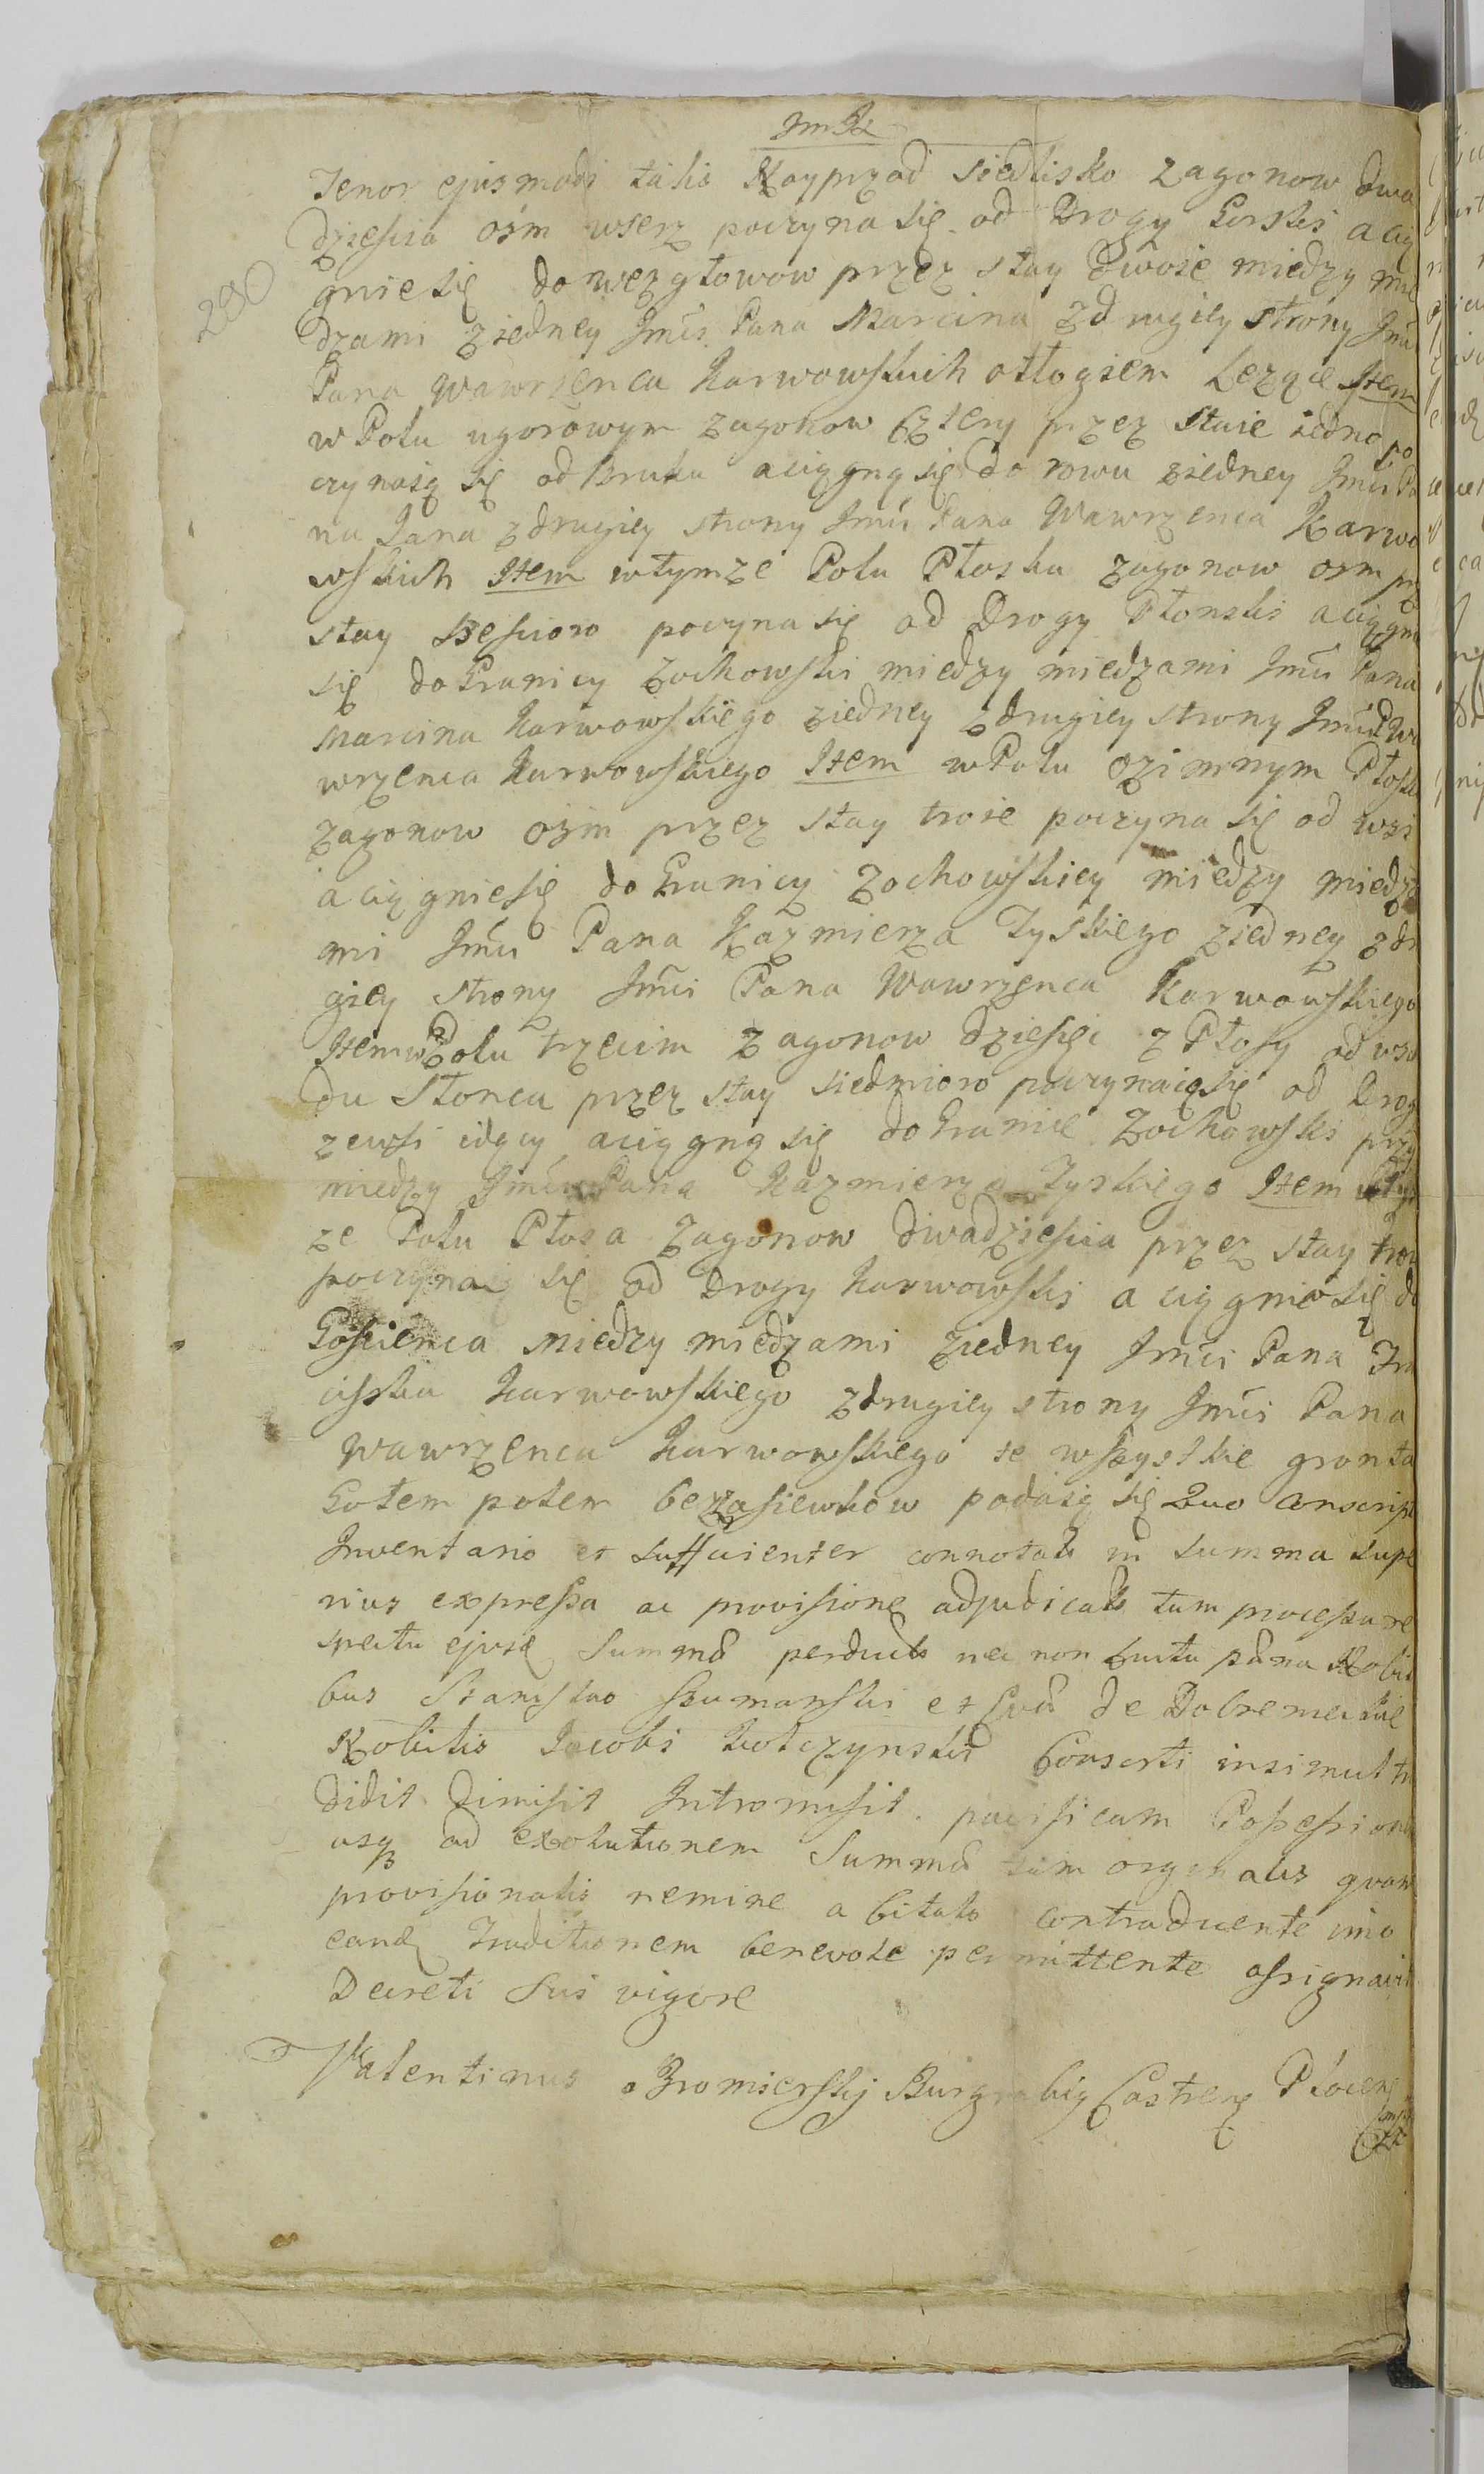 Tenor ejusmodi talis Nayprzod siedlisko zagonow dwa
dziescia osm wserz poczyna się od Drogi Gorskiy a cię
gnie się do wezgłowow przez stay dwoie miedzy mie
dzami ziedney Jmci Pana Marcina zdrugiey strony Jmci
Pana Wawrzenca Karwowskich odłogiem Lezące Item
w Polu ugorowym zagonow cztery przez staie iedno po
czynaią się od Bruku a ciągną się do rowu ziedney Jmci Pa
na Jana zdrugiey strony Jmci Pana Wawrzenca Karwo
wskich Item wtymze Polu Płoska zagonow osm prz
stay szescioro poczyna się od Drogi Płonskiy a ciągni
się do Granicy Zochowski miedzy miedzami Jmci Pana
Marcina Karwowskiego ziedney zdrugiey strony Jmci P Wa
wrzenca Karwowskiego Item w Polu ozimnym Płoska
zagonow osm przez stay troie poczyna się od wsi
a cięgnie się do Granicy Zochowskiey miedzy miedza
mi Jmci Pana Kazmierza Tyskiego ziedney zdr
giey strony Jmci Pana Wawrzenca Karwowskiego
Item w Polu trzecim zagonow dziesięc z Płosy od wscho
du Słonca przez stay siedmioro poczynaią się od Drog
zewsi idący a ciągną się do Granic Zochowski przy
miedzy Jmci Pana Kazmierza Tyskiego Item wtym
ze Polu Płosa zagonow dwadziescia przez stay troie
poczyna się od Drogi Karwowskiy a cięgnie się do
Goscienca miedzy miedzami ziedney Jmci Pana Fra
ciszka Karwowskiego zdrugiey strony Jmci Pana
Wawrzenca Karwowskiego te wszystkie gronta
Gołem polem bez zasiewkow podaią się Quo conscript
Inventario et sufficienter connotato in summa supe
rius expressa ac provisione adjudicata tum processu re
spectu ejusq summæ perducto nec non luita pæna Nobil
bus Stanislao Szumanski et Evæ de Dobremeckie
Nobilis Jacobi Kolczynski Consorti insimul tra
didit Dimisit Intromisit pacificam Possession
usq ad exolutionem Summæ tam orginalis quam
provisionalis nemine a Citato contradicente imo
eandē Traditionem benevole permittente assignavit
Decreti sui vigore
Valentinus a Bromierskij Burgrabiq Castreñ Płocenē
mp
290